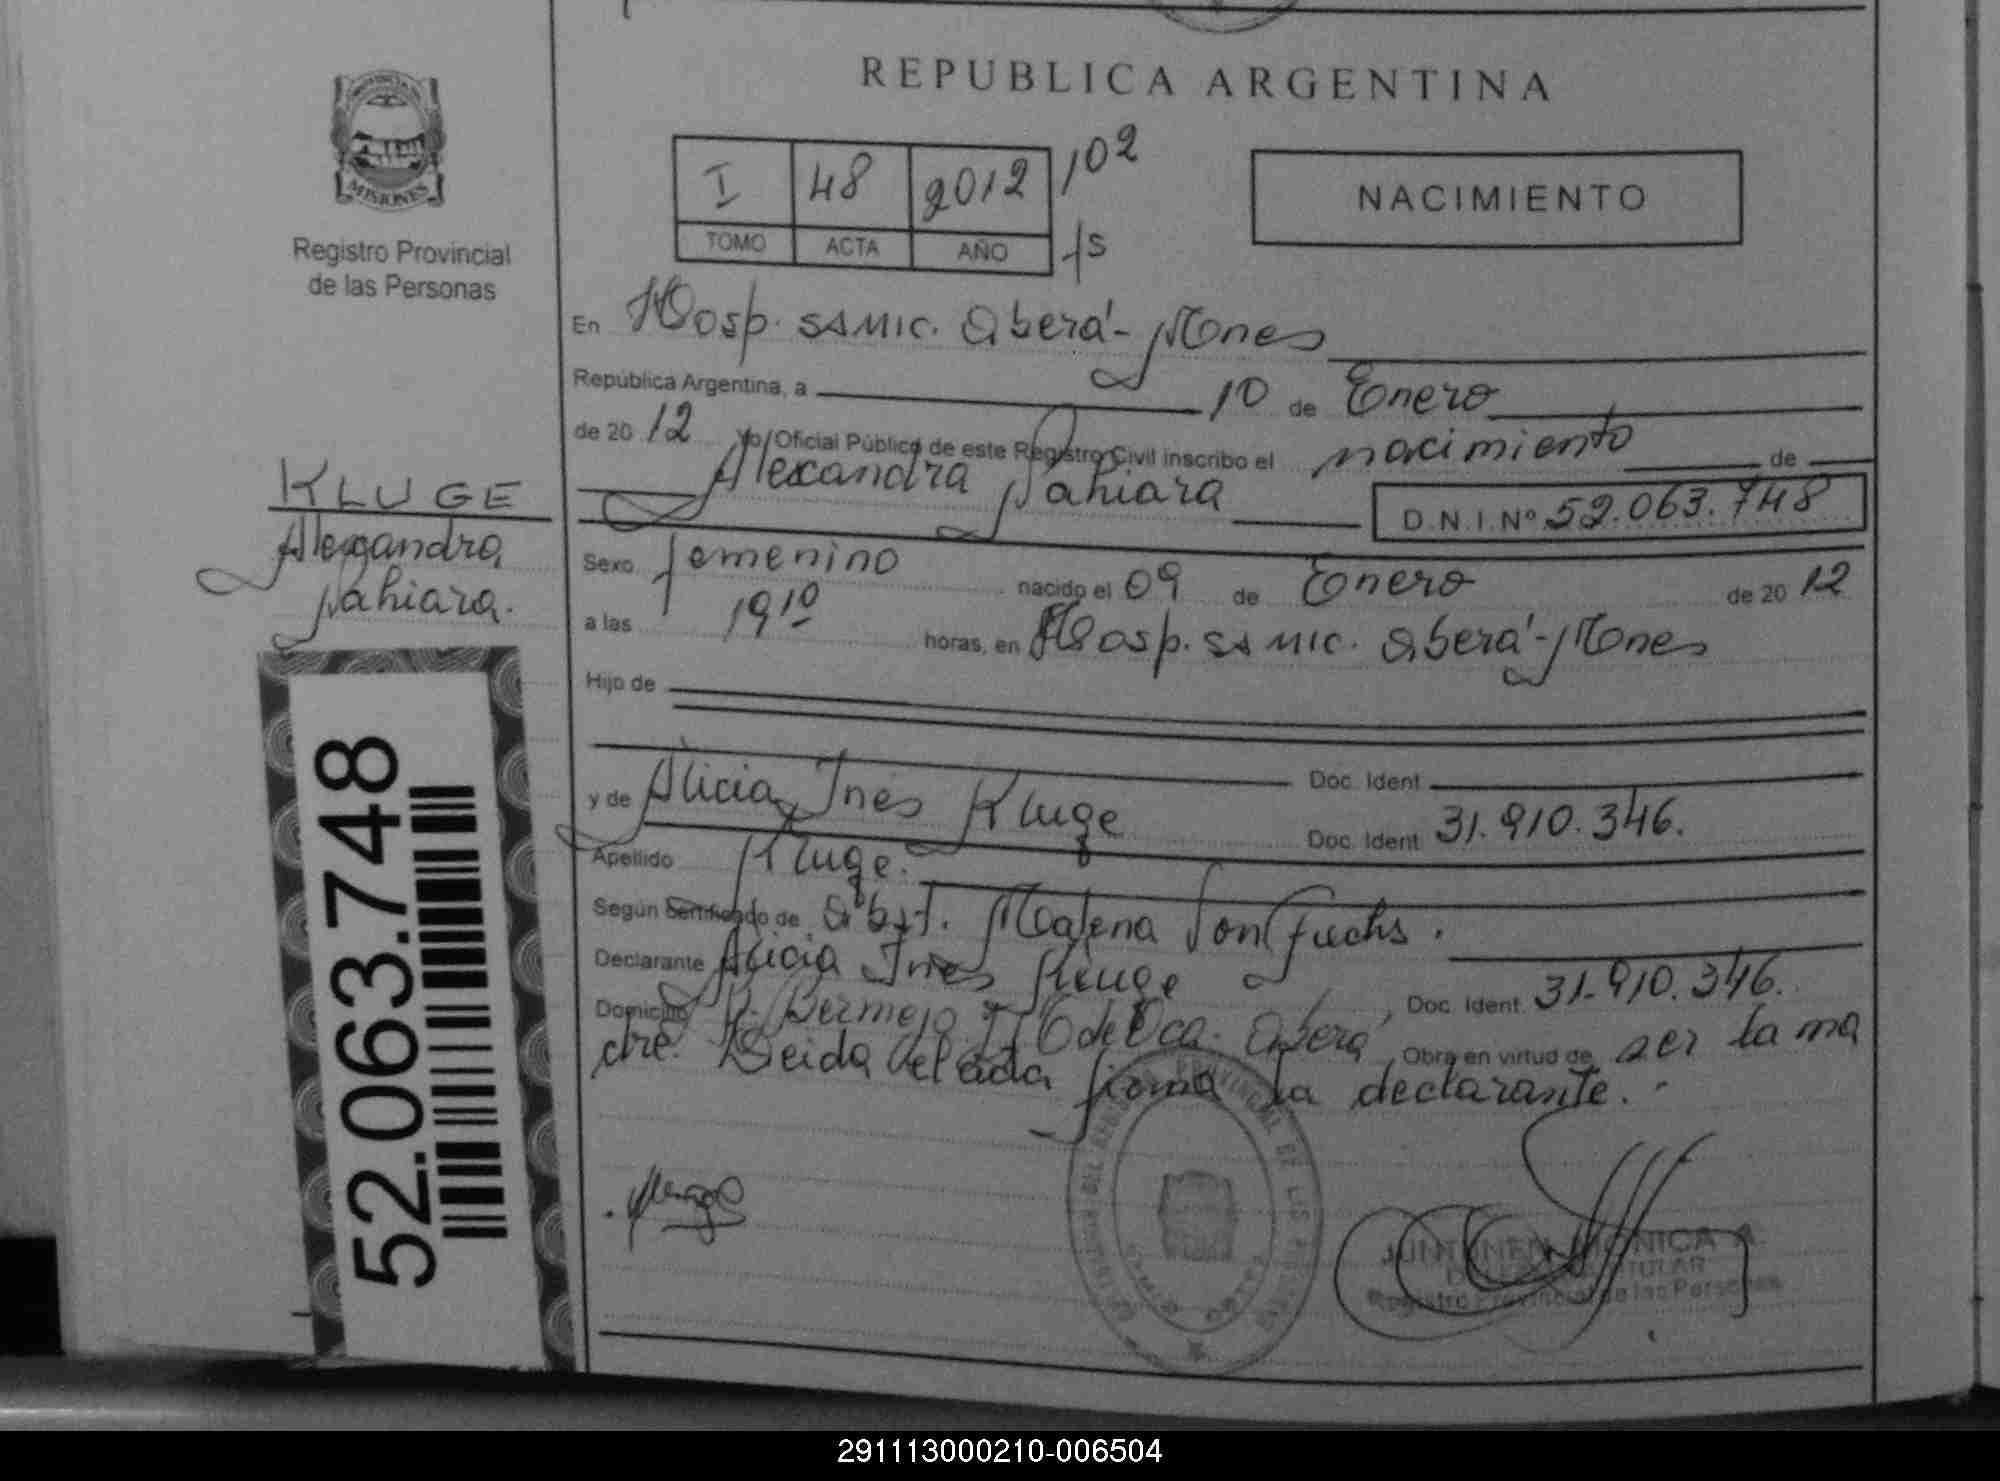 REPUBLICA ARGENTINA
MISIONES
Registro Provincial
de las Personas
I 48 2012 102
TOMO ACTA AÑO fs
NACIMIENTO
En Hosp. SAMIC. Oberá - Mnes
República Argentina, a 10 de Enero
de 20 12 yo, Oficial Público de este Registro Civil inscribo el nacimiento de
Alexandra Jahiara D.N.I. Nº 52.063.748
KLUGE
Alexandra
Jahiara.
Sexo femenino nacido el 09 de Enero de 20 12
a las 19 10 horas, en Hosp. SAMIC. Oberá - Mnes
Hijo de
Doc. Ident.
y de Alicia Inés Kluge Doc. Ident. 31.910.346.
Apellido Kluge.
Según certificado de Obst. Malena Von Fuchs.
Declarante Alicia Inés Kluge Doc. Ident. 31.910.346.
Domicilio Bermejo y M de Oca. Oberá, Obra en virtud de ser la ma
dre. Leida el acta firma la declarante.
52.063.748
JUNTUNEN MONICA A.
TITULAR
Registro Provincial de las Personas
291113000210-006504